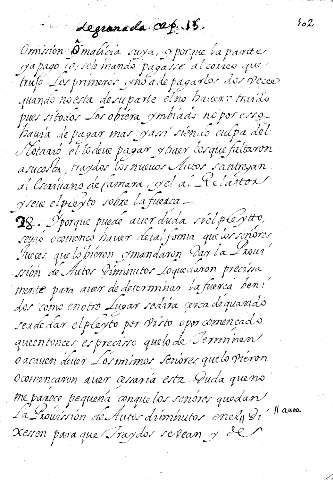 de granada cap. 15.
102
omission o malicia suya, y porque la parte es
ya pago lo, se le mando pagase al correo que
trujo los primeros, y no a de pagarlos dos veces
quando no esta de su parte el no haver traido
pues si todos los obiera ymbiado no por esso
havia de pagar mas, y assi siendo culpa del
Notario el lo deve pagar, y traer los que faltaron
a su costa, traydos los nuevos Autos se entregan
al Escrivano de Camara, y el al Relator
y se ve el pleyto sobre la fuerca.
28. Y porque puede aver duda si el pleyto,
se vio o comenco haver de tal forma que los señores
Jueces que lo vieron, y mandaron dar la Provi
sion de Autos diminutos lo quedaron precisa
mente para aver de determinar la fuerca veni
dos como en otro lugar se dira cerca de quando
se a de dar el pleyto por visto o por comencado
que entonces es preciso que lo determinen
o acaven de ver los mismos señores que lo vieron
o comencaron a ver cesaria esta duda que no
me parece pequeña con que los señores que dan
la Provission de Autos diminutos en el
auto
Di
xessen para que traydos se vean, y de